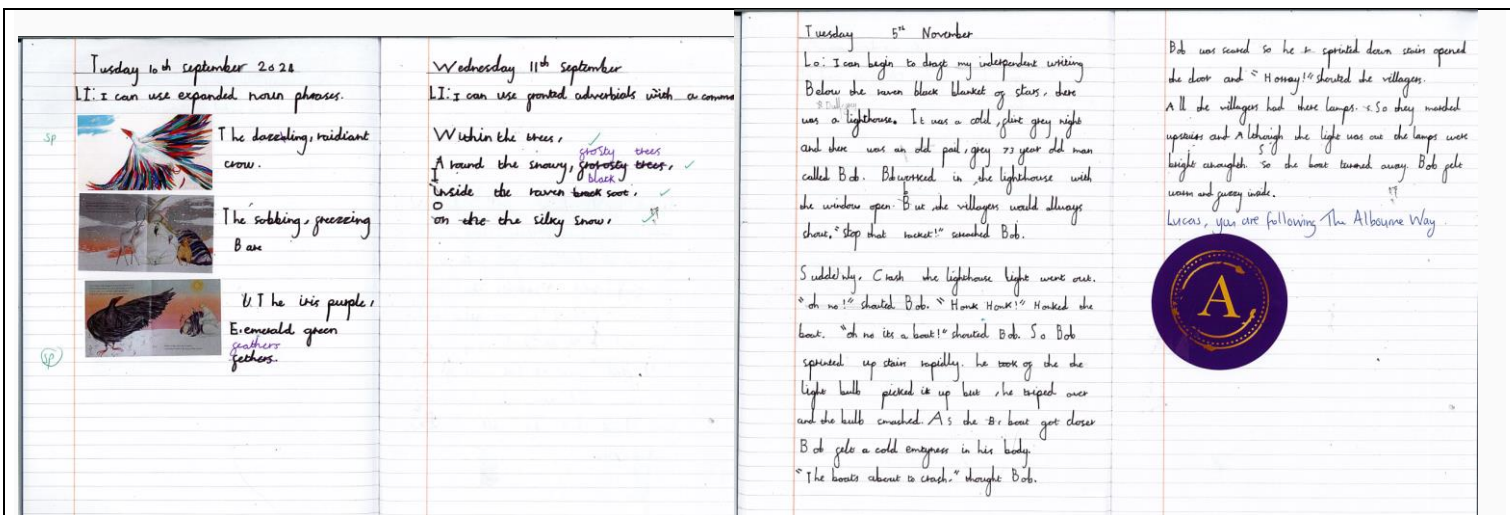 Tusday 10th september 2024
LI: I can use expanded noun phrases.
sp
The dazzling, raidiant
crow.
The sobbing, freezzing
Bare
The iris purple,
E.emerald green
feathers
fethers.
sp
Wednesday 11th september
LI: I can use fronted adverbials with a comma
Within the trees,
frosty trees
Around the snowy, frorosty trees,
black
Inside the raven brack soot,
on the the silky snow,
Tuesday 5th November
Lo: I can begin to draft my independent writing
Below the raven black blanket of stars, there
was a lighthouse. It was a cold, flint grey night
and there was an old pail, grey 73 year old man
called Bob. Bob worked in the lighthouse with
the window open. But the villagers would allways
shout, "stop that racket!" screached Bob.
Suddelnly, Crash the lighthouse light went out.
"oh no!" shouted Bob. "Honk Honk!" Honked the
boat. "oh no its a boat!" shouted Bob. So Bob
sprinted up stairs rapidly. he took of the the
light bulb picked it up but, he triped over
and the bulb smashed. As the B. boat got closer
Bob felt a cold emtyness in his body.
"The boats about to crash." thought Bob.
Bob was scared so he sprinted down stairs opened
the door and "Horray!" shouted the villagers.
All the villagers had there lamps. So they marched
upstairs and Although the light was out the lamps were
bright enoughth. So the boat turned away. Bob felt
warm and fuzzy inside.
Lucas, you are following The Albourne Way
A